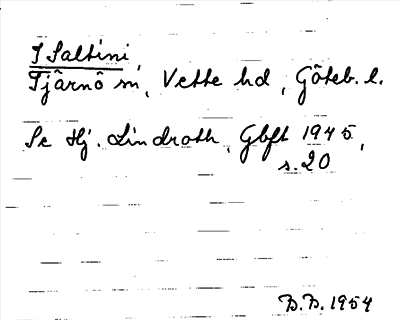 I Saltini,
Tjärnö sn, Vette hd, Göteb. l.
Se Hj. Lindroth, Gbft 1945,
s. 20
B.B. 1954